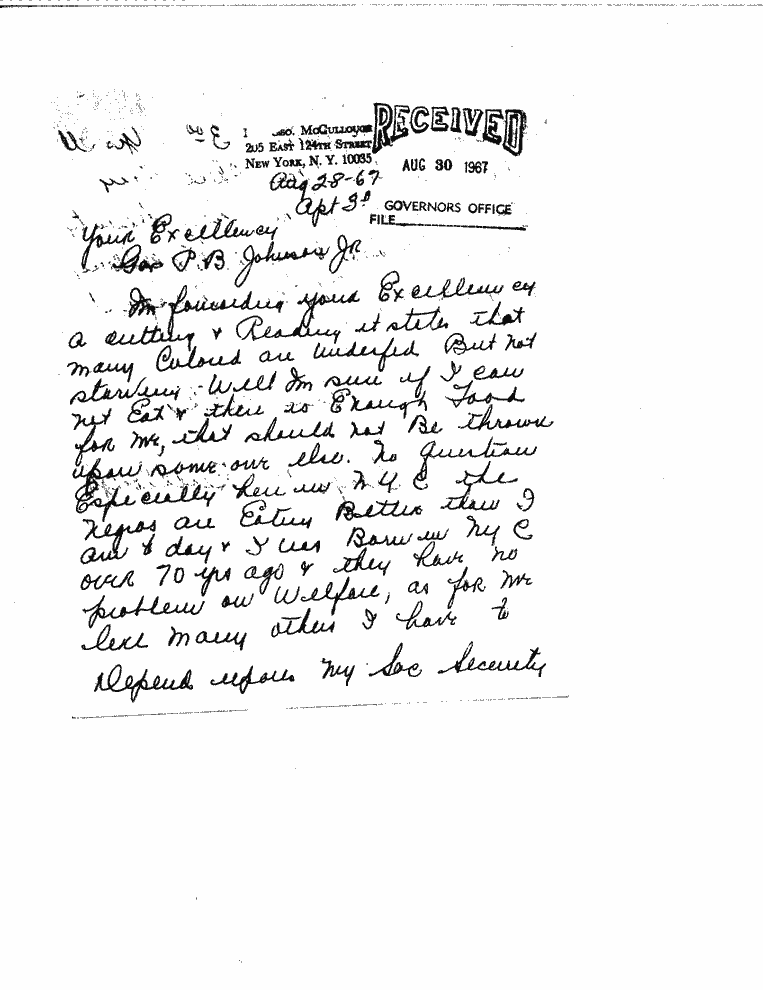 Geo. McCullough
205 East 124th Street
New York, N. Y. 10035
RECEIVED
AUG 30 1967
GOVERNORS OFFICE
FILE
Aug 28-67
Apt 3D
Your Excellency
Gov P. B Johnson JR
Im forwarding your Excellency
a cutting & Reading it states that
many Colored are underfed But not
starving. Well Im sure if I can
not Eat & there is Enough Food
for me, that should not Be thrown
upon some one else. No Question
Especially here in N Y C the
Negros are Eating Better than I
am to day & I was Born in NY C
over 70 yrs ago & they have no
problem on Welfare, as for me
like many others I have to
Depend upon my Soc Security